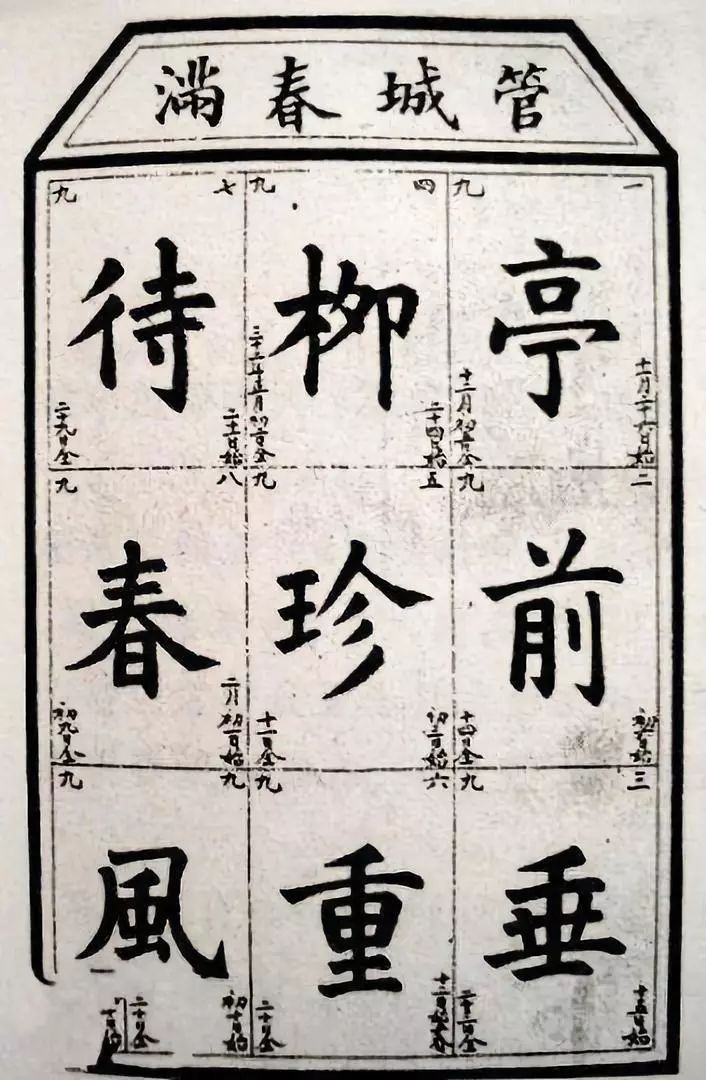 管城春滿
一九
亭
十一月二十六日始
二九
前
初六日始
十四日全
三九
垂
十五日始
二十三日全
四九
柳
二十四日始
五九
珍
初三日始
十一日全
六九
重
二十日全
七九
待
二十一日始
二十九日全
八九
春
二月初一日始
初九日全
九九
風
初十日始